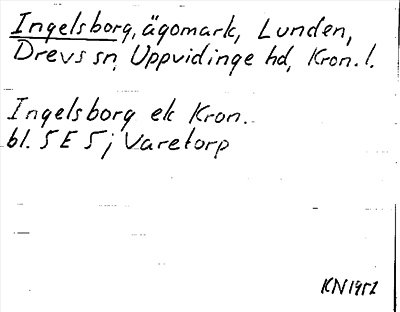 Ingelsborg, ägomark, Lunden,
Drevs sn, Uppvidinge hd, Kron. l.
Ingelsborg ek Kron.
bl. 5 E 5 j Varetorp
KN 1951